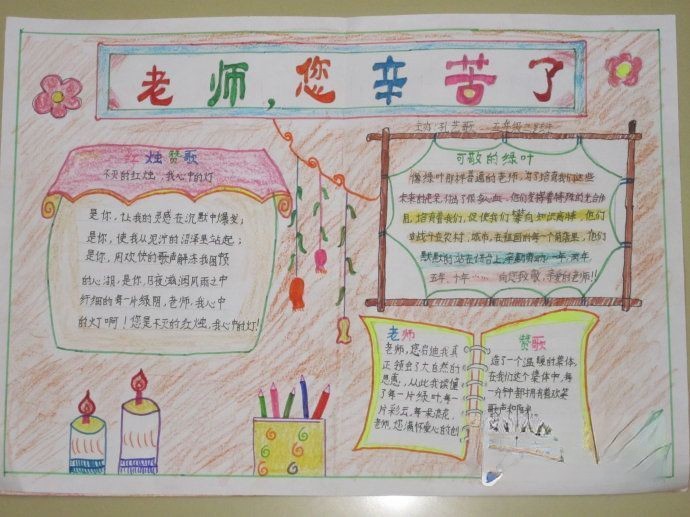 老师,您辛苦了
红烛赞歌
不灭的红烛,我心中的灯
是你,让我的灵感在沉默中爆发;
是你,使我从泥泞的沼泽里站起;
是你,用欢快的歌声解冻我困顿
的心湖,是你,日夜滋润风雨之中
纤细的每一片绿阴,老师,我心中
的火灯啊!您是不灭的红烛,我心中的灯!
可敬的绿叶
像绿叶那样普通的老师,为了培育我们这些
未来的花朵,付出了很多心血,他们发挥着特殊的光合作
用,培育着我们,促使我们攀向知识高峰,他们
默默的站在讲台上,辛勤劳动,一年,两年,
五年、十年……向您致敬,亲爱的老师!!
老师
老师,您启迪我真
正领会了大自然的
恩惠,从此我读懂
了每一片绿叶,每一
片彩云,每一朵浪花,
老师,您满怀爱心的创
赞歌
造了一个温暖的集体,
在我们这个集体中,每
一分钟都拥有着欢笑
歌声和阳光